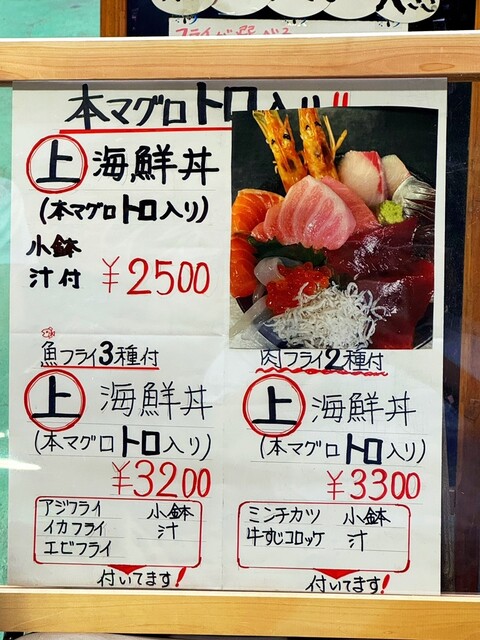 本マグロトロ入り!!
上 海鮮丼
(本マグロトロ入り)
小鉢
汁付 ¥2500
魚フライ3種付
上 海鮮丼
(本マグロトロ入り)
¥3200
アジフライ 小鉢
イカフライ 汁
エビフライ
付いてます!
肉フライ2種付
上 海鮮丼
(本マグロトロ入り)
¥3300
ミンチカツ 小鉢
牛すじコロッケ 汁
付いてます!